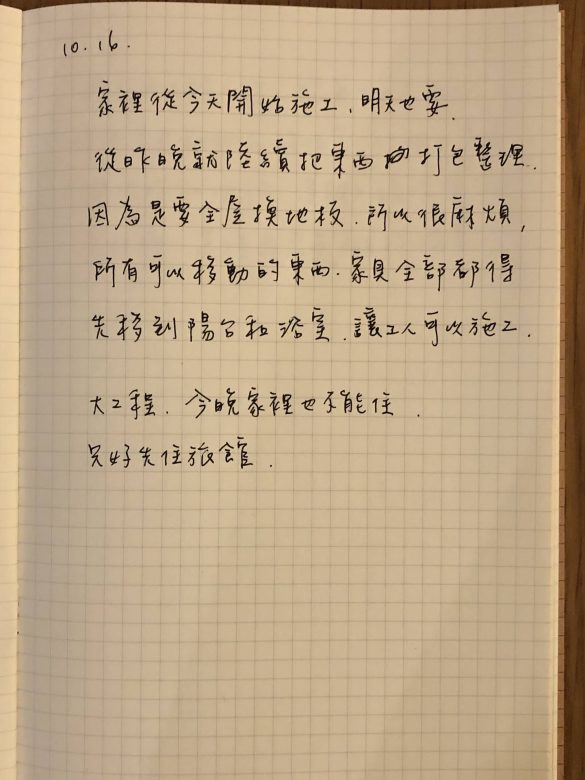 10.16.
家裡從今天開始施工，明天也要．
從昨晚就陸續把東西打包整理．
因為是要全屋換地板．所以很麻煩，
所有可以移動的東西．家具全部都得
先移到陽台和浴室．讓工人可以施工．
大工程．今晚家裡也不能住．
只好先住旅館．